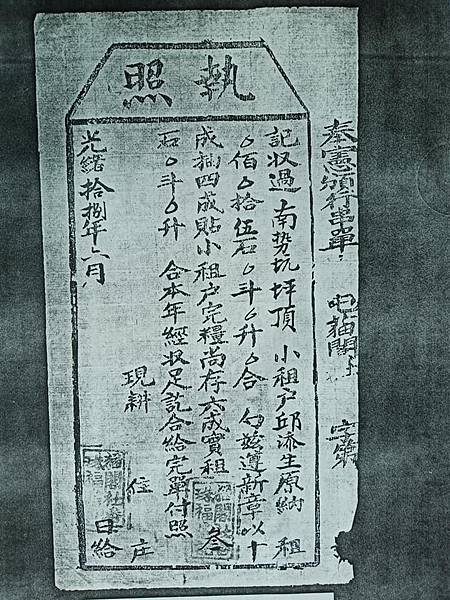 執照
奉憲頒行串單 屯貓閣 字第
記收過 南势坑坪頂 小租戶邱添生原納 租
〇佰〇拾伍石〇斗〇升〇合 茲遵新章以十
成抽四成貼小租戶完糧尚存六成實租 叁
石〇斗〇升 合本年經收足訖合給完單付照
現耕 住 庄
光緒拾捌年六月 日給